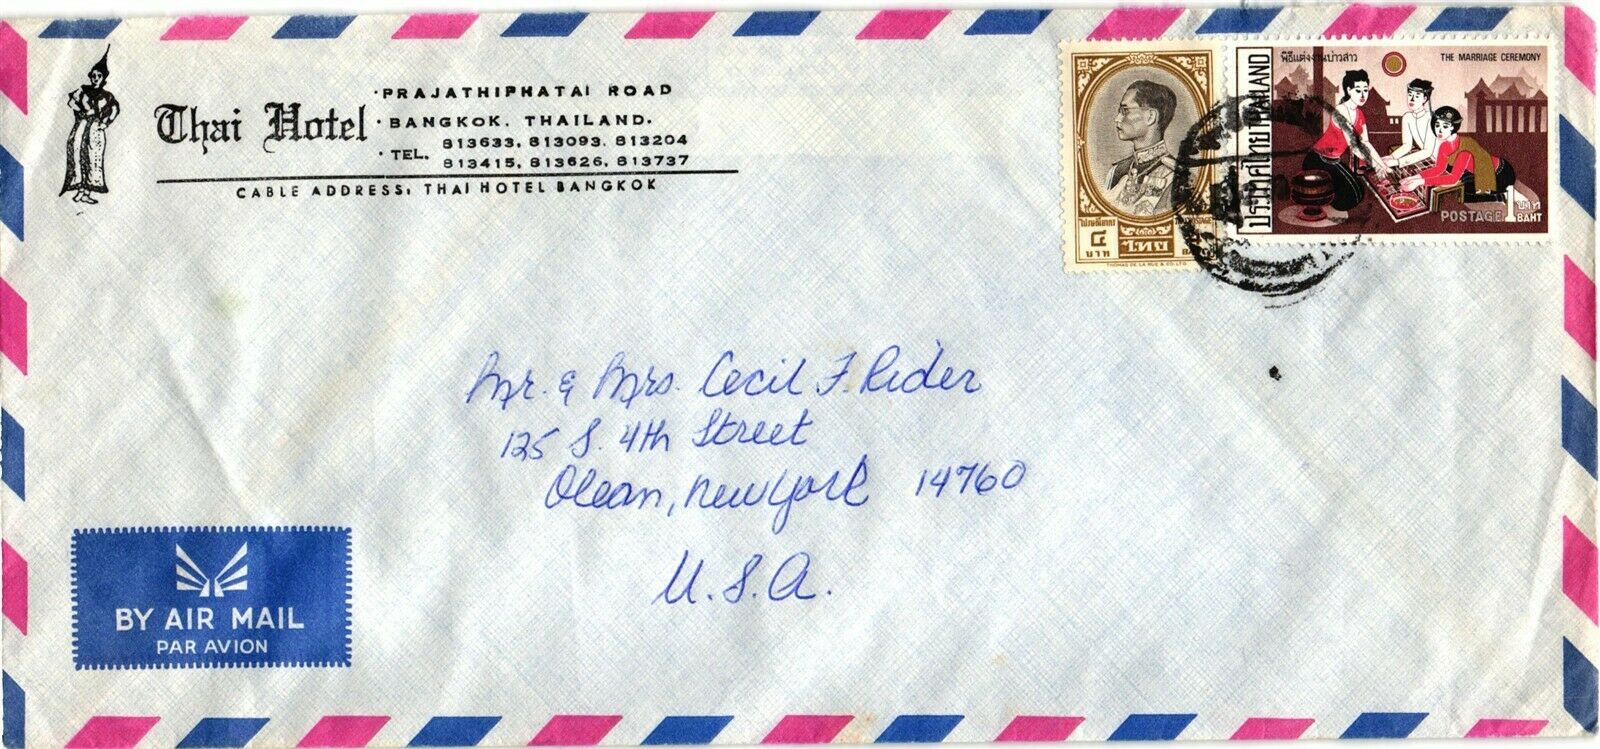 Thai Hotel
· PRAJATHIPHATAI ROAD
· BANGKOK, THAILAND.
· TEL. 813633, 813093, 813204
813415, 813626, 813737
CABLE ADDRESS, THAI HOTEL BANGKOK
๔
บาท
ไทย
THOMAS DE LA RUE & CO. LTD.
ประเทศไทย THAILAND
พิธีแต่งงานบ่าวสาว
THE MARRIAGE CEREMONY
POSTAGE 1 บาท BAHT
Mr. & Mrs. Cecil F. Rider
125 S. 4th Street
Olean, New York 14760
U.S.A.
BY AIR MAIL
PAR AVION